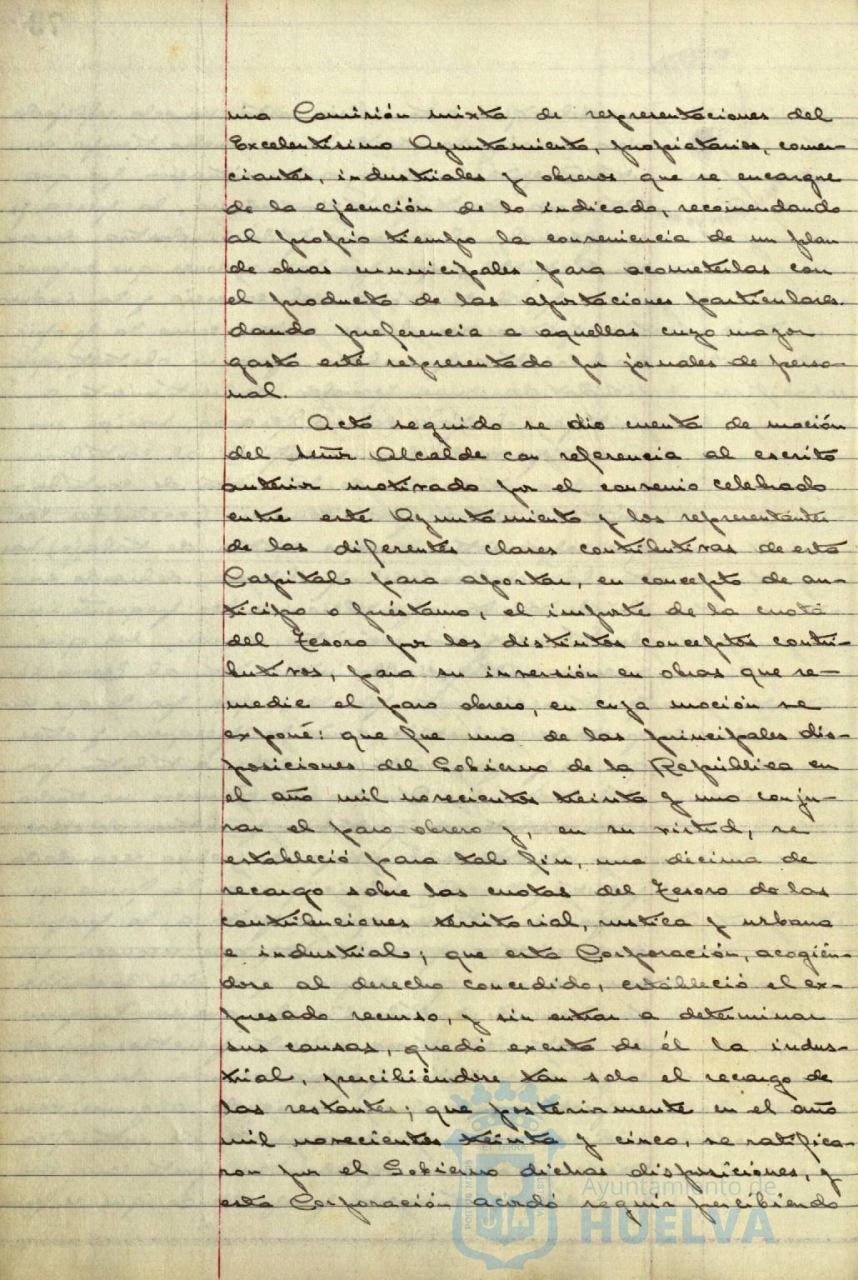 una Comisión mixta de representaciones del
Excelentísimo Ayuntamiento, propietarios, comer-
ciantes, industriales y obreros que se encargue
de la ejecución de lo indicado, recomendando
al propio tiempo la conveniencia de un plan
de obras municipales para acometerlas con
el producto de las aportaciones particulares.
dando preferencia a aquellas cuyo mayor
gasto esté representado por jornales de perso-
nal.
Acto seguido se dio cuenta de moción
del señor Alcalde con referencia al escrito
anterior motivado por el convenio celebrado
entre este Ayuntamiento y los representantes
de las diferentes clases contributivas de esta
Capital para aportar, en concepto de an-
ticipo o préstamo, el importe de la cuota
del Tesoro por los distintos conceptos contri-
butivos, para su inversión en obras que re-
medie el paro obrero, en cuya moción se
expone: que fue una de las principales dis-
posiciones del Gobierno de la República en
el año mil novecientos treinta y uno conju-
rar el paro obrero y, en su virtud, se
estableció para tal fin, una décima de
recargo sobre las cuotas del Tesoro de las
contribuciones territorial, rústica y urbana
e industrial; que esta Corporación, acogién-
dose al derecho concedido, estableció el ex-
presado recurso, y sin entrar a determinar
sus causas, quedó exenta de él la indus-
trial, percibiéndose tan solo el recargo de
las restantes; que posteriormente en el año
mil novecientos treinta y cinco, se ratifica-
ron por el Gobierno dichas disposiciones, y
esta Corporación acordó seguir percibiendo
Ayuntamiento de
HUELVA